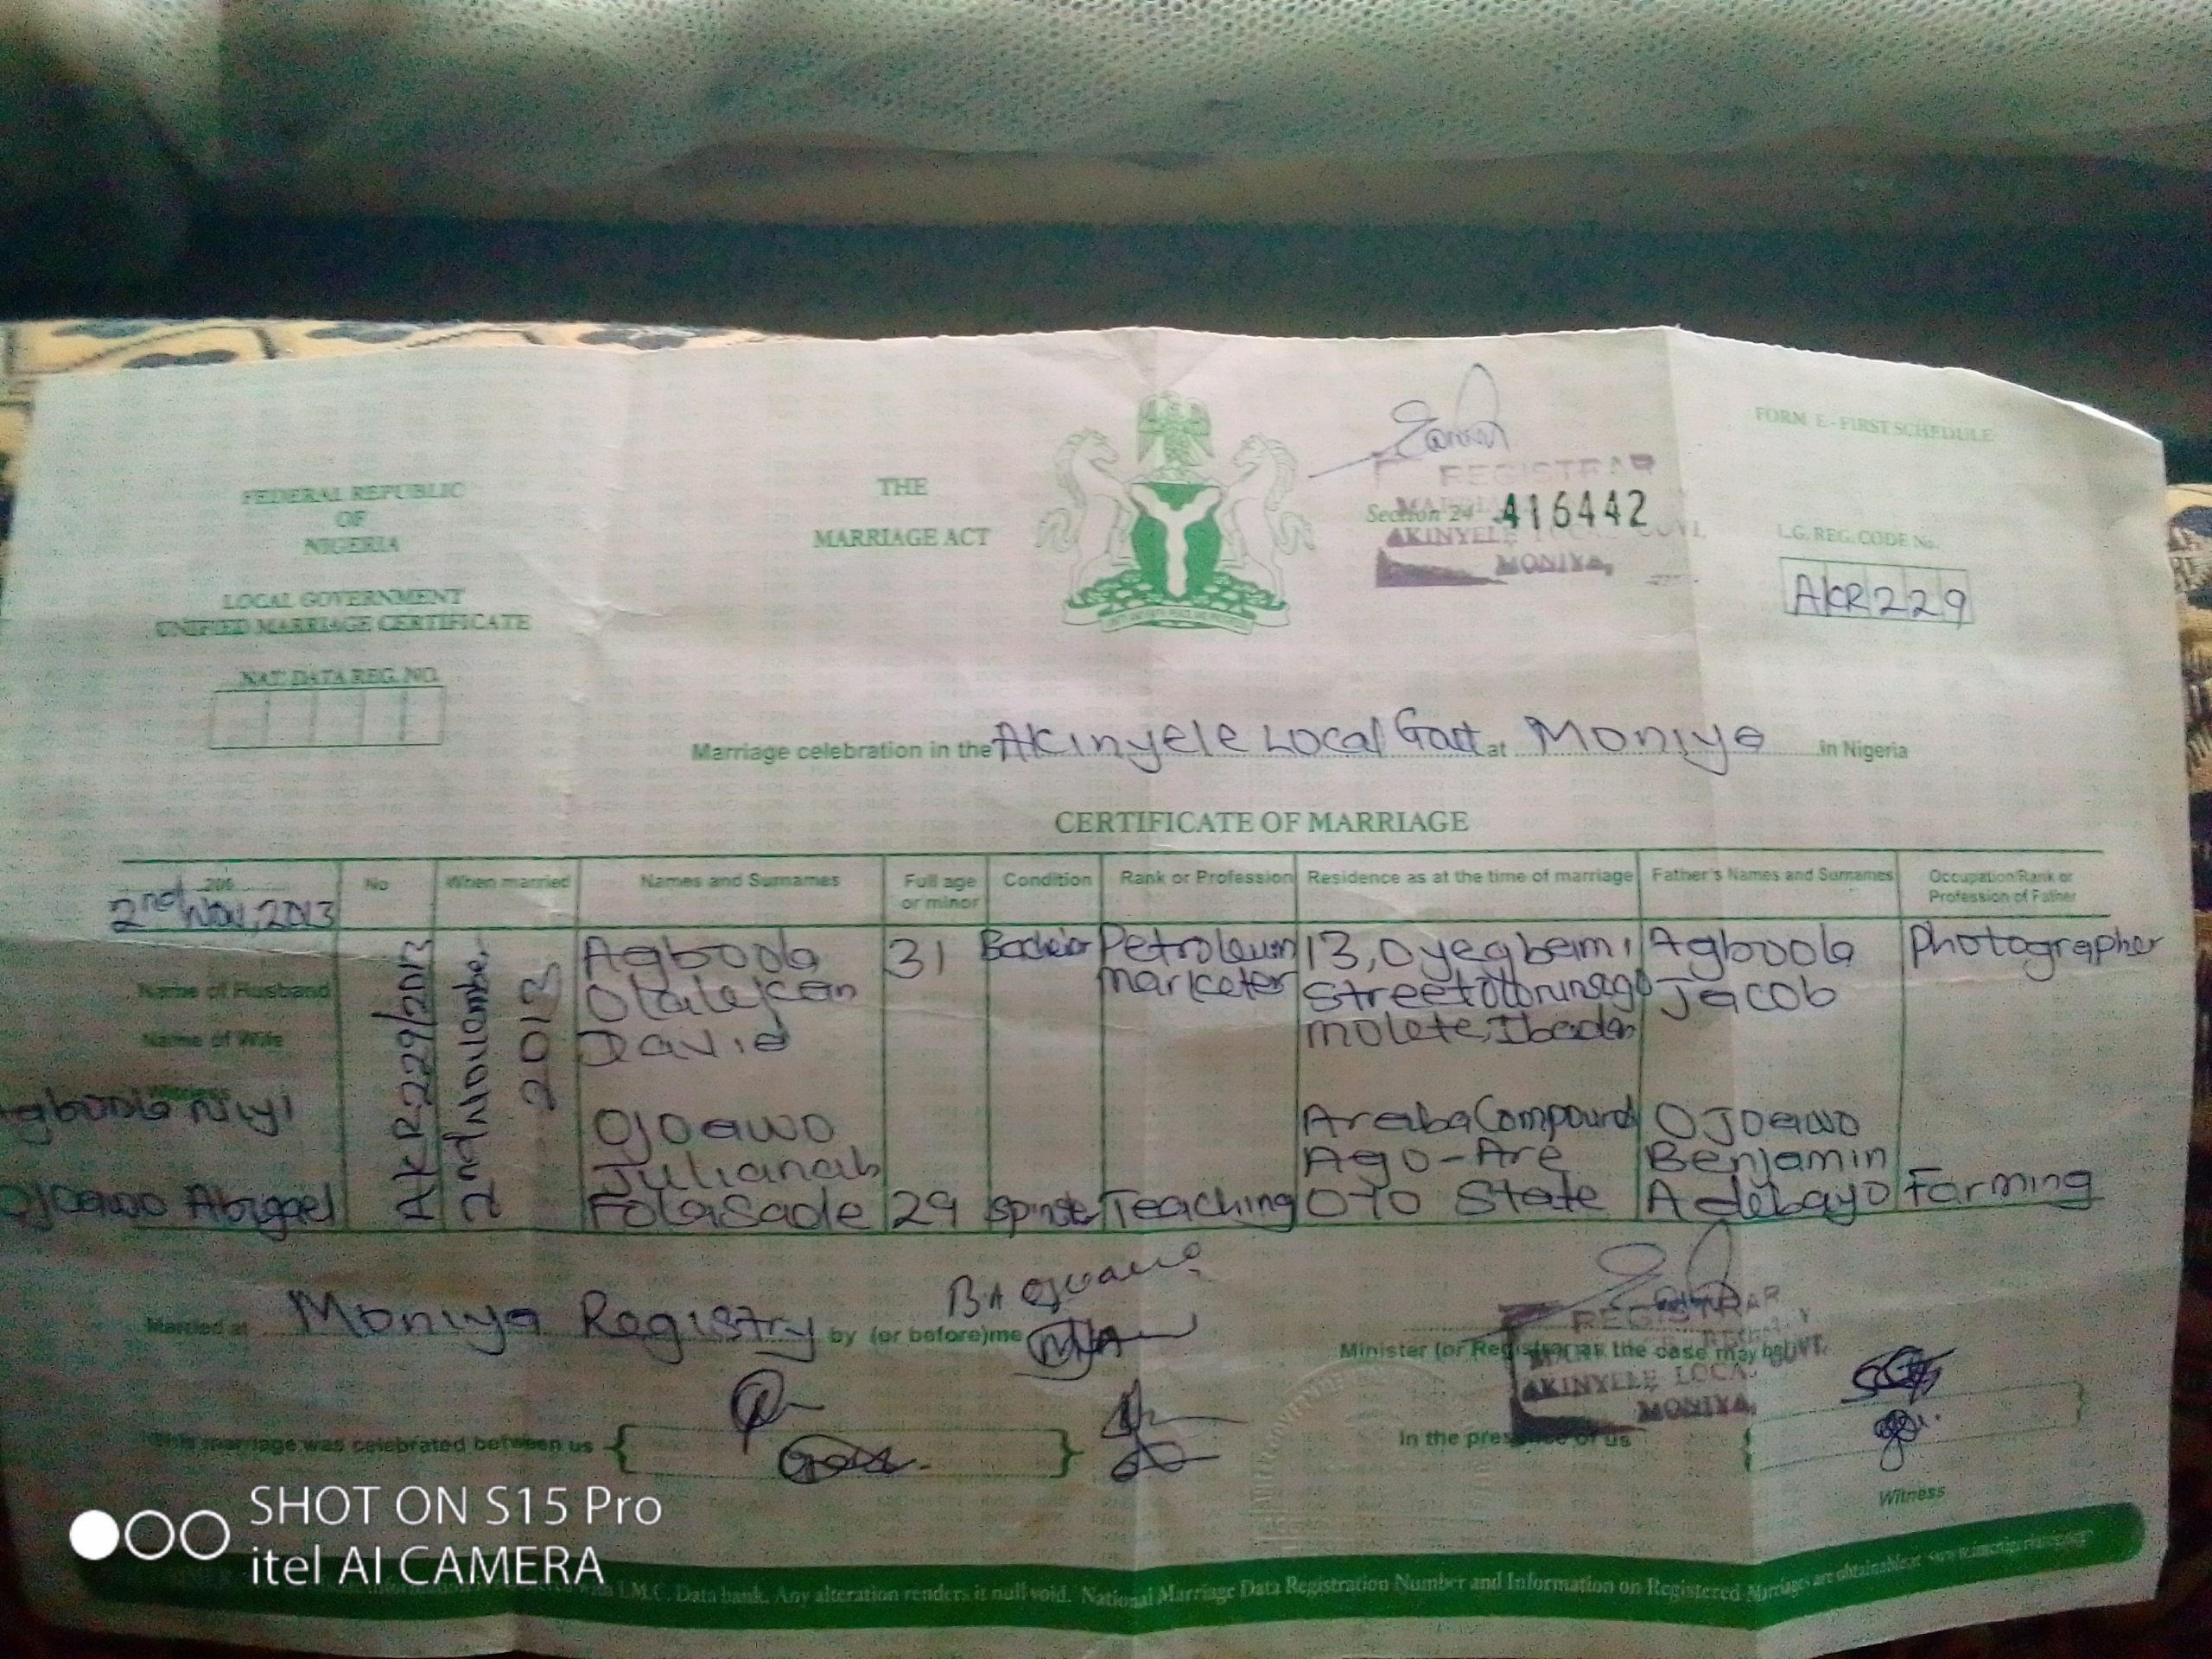 FORM E - FIRST SCHEDULE
FEDERAL REPUBLIC
OF
NIGERIA
THE
MARRIAGE ACT
REGISTRAR
Section 24 416442
AKINYELE LOCAL GOVT.
MONIYA,
L.G. REG. CODE No.
AKR229
LOCAL GOVERNMENT
UNIFIED MARRIAGE CERTIFICATE
NAT. DATA REG. NO.
Marriage celebration in the Akinyele Local Govt at Moniya in Nigeria
CERTIFICATE OF MARRIAGE
200
2nd Nov, 2013
No
When married
Names and Surnames
Full age
or minor
Condition
Rank or Profession
Residence as at the time of marriage
Father's Names and Surnames
Occupation/Rank or
Profession of Father
Name of Husband
Name of Wife
Witness
gboola Niyi
Ojoawo Abigael
AKR229/2013
2nd November
2013
Agboola
Olalekan
David
31
Bachelor
Petroleum
marketer
13, Oyegbemi
Street
molete, Ibadan
Agboola
Jacob
Photographer
Ojoawo
Julianah
Folasade
29
Spinster
Teaching
Araba Compound
Ago-Are
OYO State
OJoawo
Benjamin
Adebayo
Farming
Married at Moniya Registry by (or before) me
Minister (or Registrar as the case may be)
REGISTRAR
AKINYELE LOCAL GOVT.
MONIYA,
This marriage was celebrated between us
In the presence of us
Witness
with I.M.C. Data bank. Any alteration renders it null void. National Marriage Data Registration Number and Information on Registered Marriages are obtainable at
SHOT ON S15 Pro
itel AI CAMERA